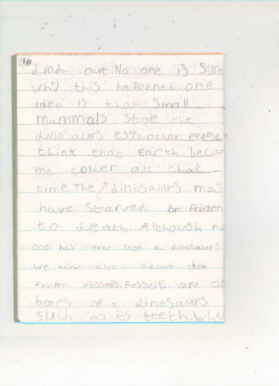 died out No one is sure
why this happened one
idea is that small
mammals stole the
dinosaurs eggs other people
think that Earth beca
me colder all that
time The dinosaurs may
have starved or frozen
to death Although n
one has ever a dinosaurs
we about them
from fossils. Fossils are
bones of a dinosaurs
such as its teeth